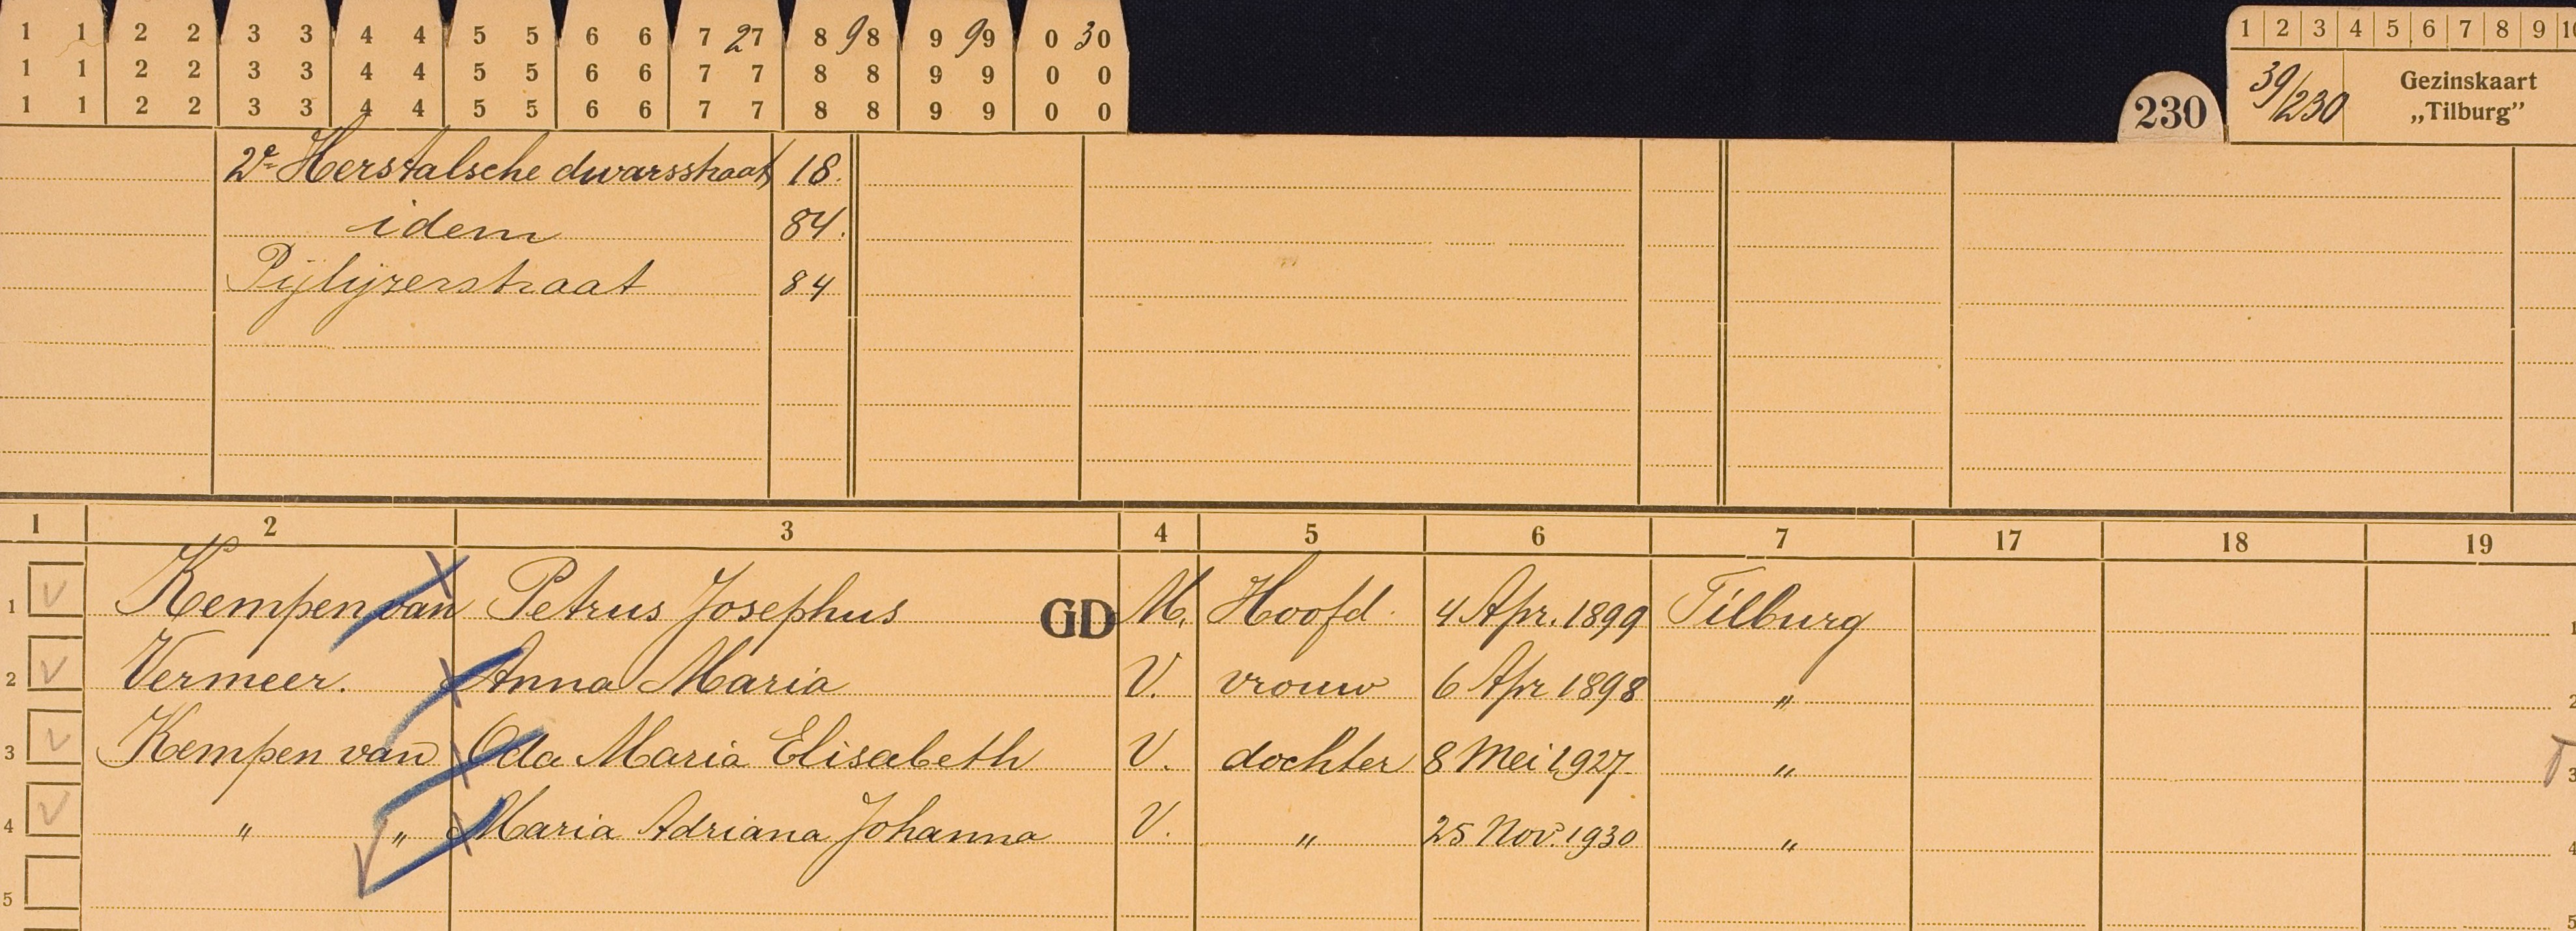 1 1 2 2 3 3 4 4 5 5 6 6 7 27 7 8 9 8 9 9 9 0 30 0
1 1 2 2 3 3 4 4 5 5 6 6 7 7 8 8 9 9 0 0
1 1 2 2 3 3 4 4 5 5 6 6 7 7 8 8 9 9 0 0
1 2 3 4 5 6 7 8 9 10
230
39/230
Gezinskaart
„Tilburg”
2e Herstalsche dwarsstraat 18.
idem 84.
Pijlijzerstraat 84
1 2 3 4 5 6 7 17 18 19
1 Kempen van Petrus Josephus GD M. Hoofd. 4 Apr. 1899 Tilburg 1
2 Vermeer. Anna Maria V. vrouw 6 Apr 1898 „ 2
3 Kempen van Oda Maria Elisabeth V. dochter 8 Mei 1927 „ 3
4 „ „ Maria Adriana Johanna V. „ 25 Nov. 1930 „ 4
5 5